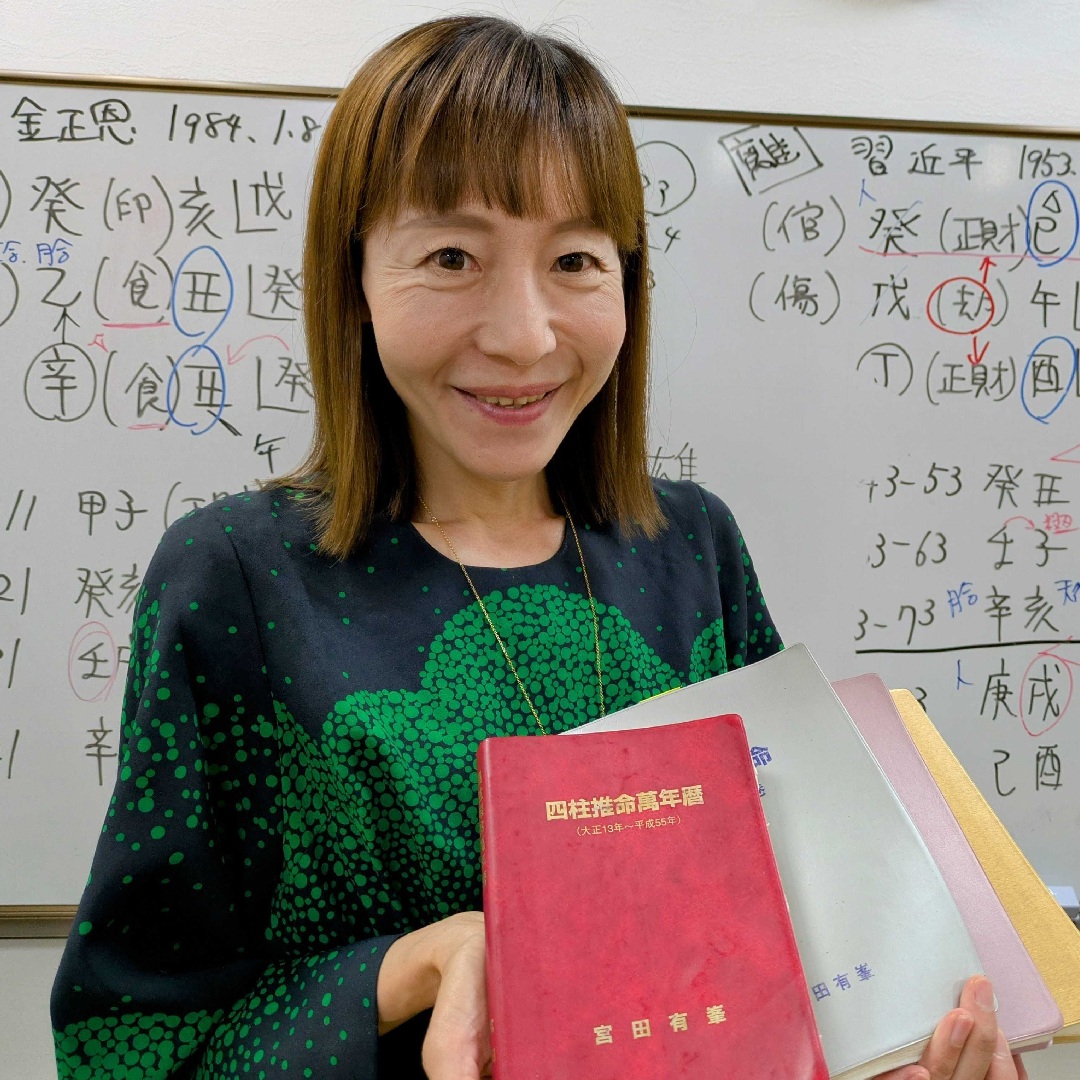 金正恩 1984.1.8
癸 (印) 亥 戊
乙 (食) 丑 癸
辛 (食) 丑 癸
午
11 甲子
21 癸亥
壬
辛
習近平 1953.
(官) 癸 (正財) 巳
(傷) 戊 (劫) 午
丁 (正財) 酉
雄
43-53 癸丑
3-63 壬子
3-73 胎 辛亥
庚戌
己酉
四柱推命萬年暦
(大正13年〜平成55年)
宮田有峯
命
田有峯